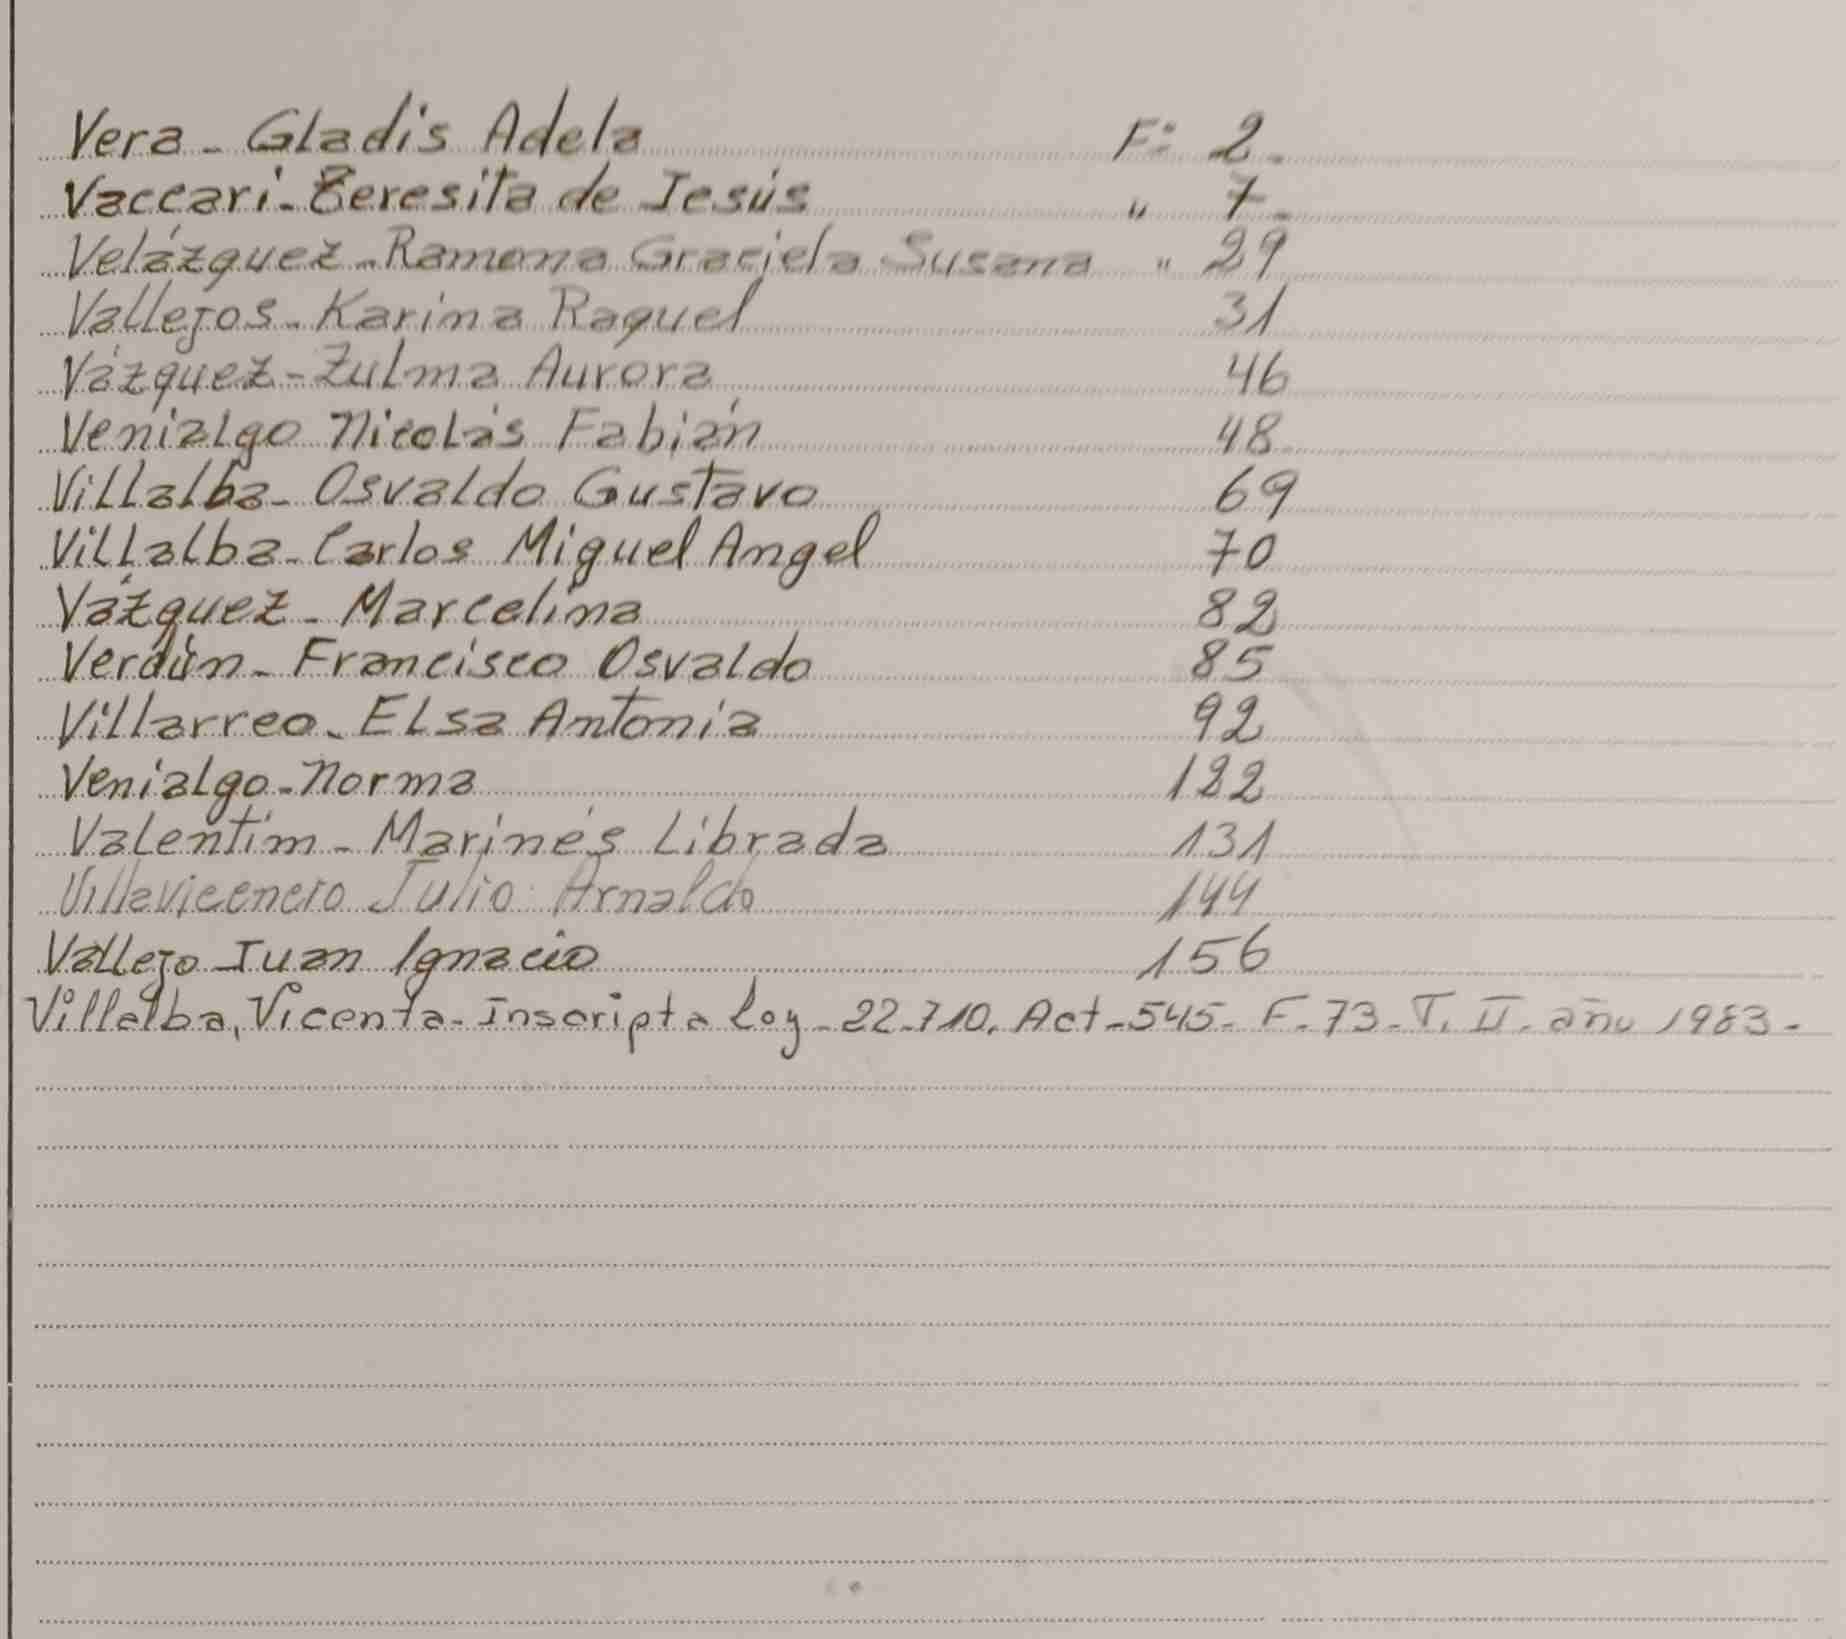 Vera - Gladis Adela F: 2 -
Vaccari - Teresita de Jesús " 7 -
Velázquez - Ramona Graciela Susana " 29
Vallejos - Karina Raquel 31
Vázquez - Zulma Aurora 46
Venialgo Nicolás Fabián 48
Villalba - Osvaldo Gustavo 69
Villalba - Carlos Miguel Angel 70
Vázquez - Marcelina 82
Verdún - Francisco Osvaldo 85
Villarreo - Elsa Antonia 92
Venialgo - Norma 122
Valentim - Marinés Librada 131
Villavicencio Julio Arnaldo 144
Vallejo Juan Ignacio 156
Villalba, Vicenta - Inscripta Ley - 22.710. Act - 545 - F - 73 - T. II - año 1983 -